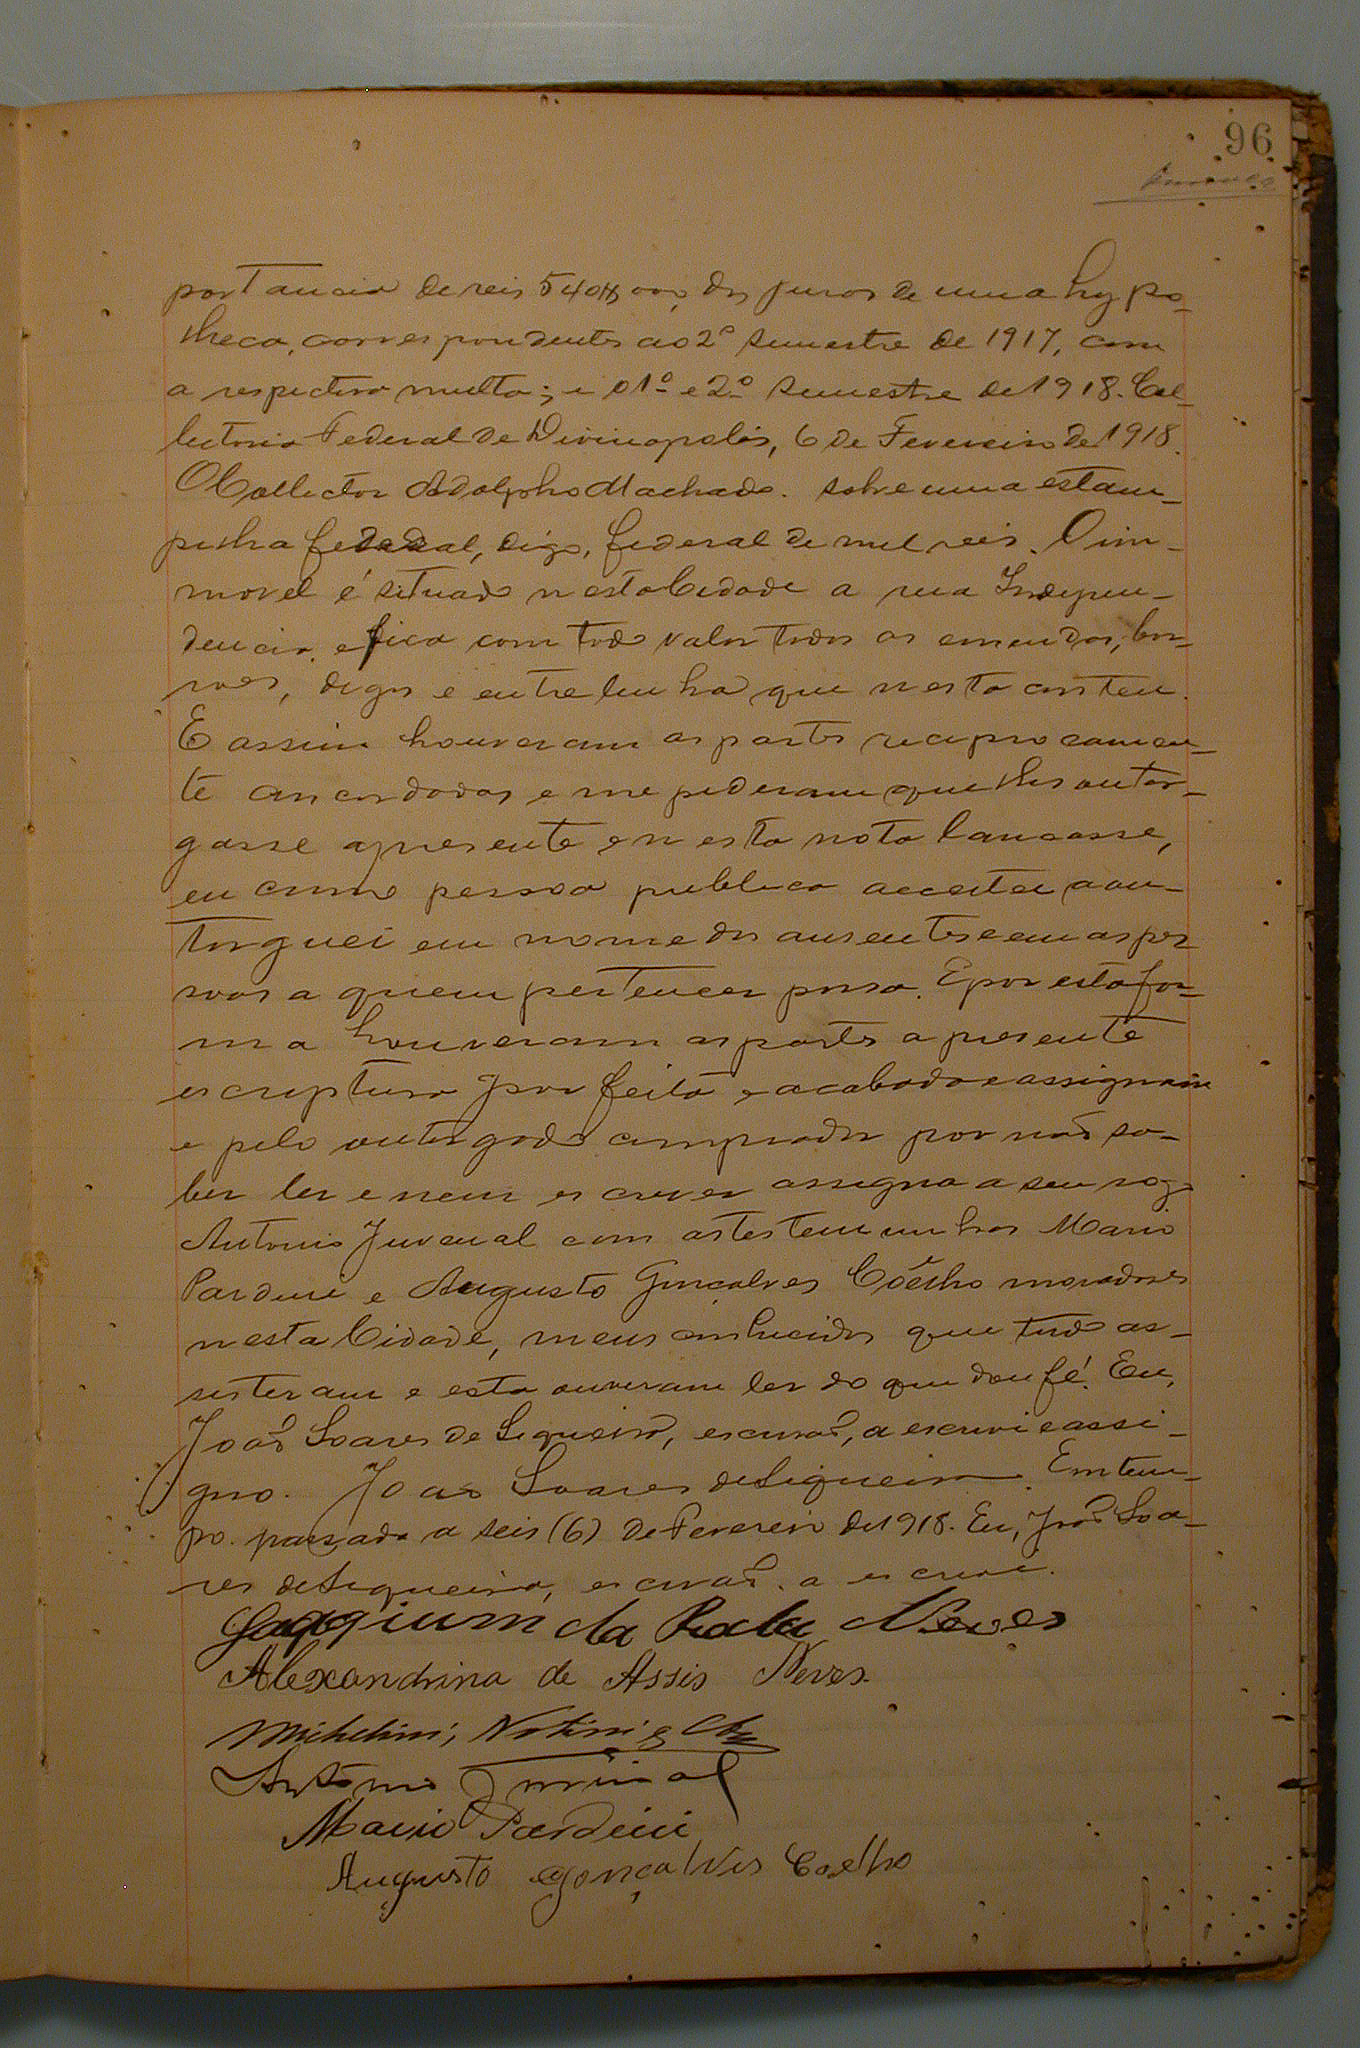 96
portancia de reis 540$000, dos juros de uma hypo-
theca, correspondentes ao 2º semestre de 1917, com
a respectiva multa; e o 1º e 2º semestre de 1918. Col-
lectoria Federal de Divinopolis, 6 de Fevereiro de 1918.
O Collector Adolpho Machado. Sobre uma estam-
pinha fedeal, digo, federal de mil reis. O im-
movel é situado nesta Cidade a rua Indepen-
dencia, e fica com todo valor todos os emendas, bor-
roes, digos e entrelinha que nesta contem.
E assim houveram as partes reciprocamen-
te concordadas e me pederam que lhes outor-
gasse a presente e nesta nota lancasse,
eu como pessoa publica acceitei a ou-
torguei em nome dos ausentes e em as pes
soas a quem pertencer possa. E por esta for-
ma houveram as partes a presente
escriptura por feita e acabada e assignam
e pelo outorgado comprador por não sa-
ber ler e nem escrever assigna a seu rogo
Antonio Juvenal com as testemunhas Mario
Pardini e Augusto Gonçalves Coêlho moradores
nesta Cidade, meus conhecidos que tudo as-
sisteram e esta ouveram ler do que dou fé. Eu,
João Soares de Siqueira, escrivão, a escrevi e assi-
gno. João Soares de Siqueira. Em tem-
po. passada a seis (6) de Fevereiro de 1918. Eu, João Soa-
res de Siqueira, escrivão. a escrevi.
Joaqium da Neves
Alexandrina de Assis Neves.
Michelini, Notini & Cia
Antonio Juvinal
Mario Pardini
Augusto Gonçalves Coelho